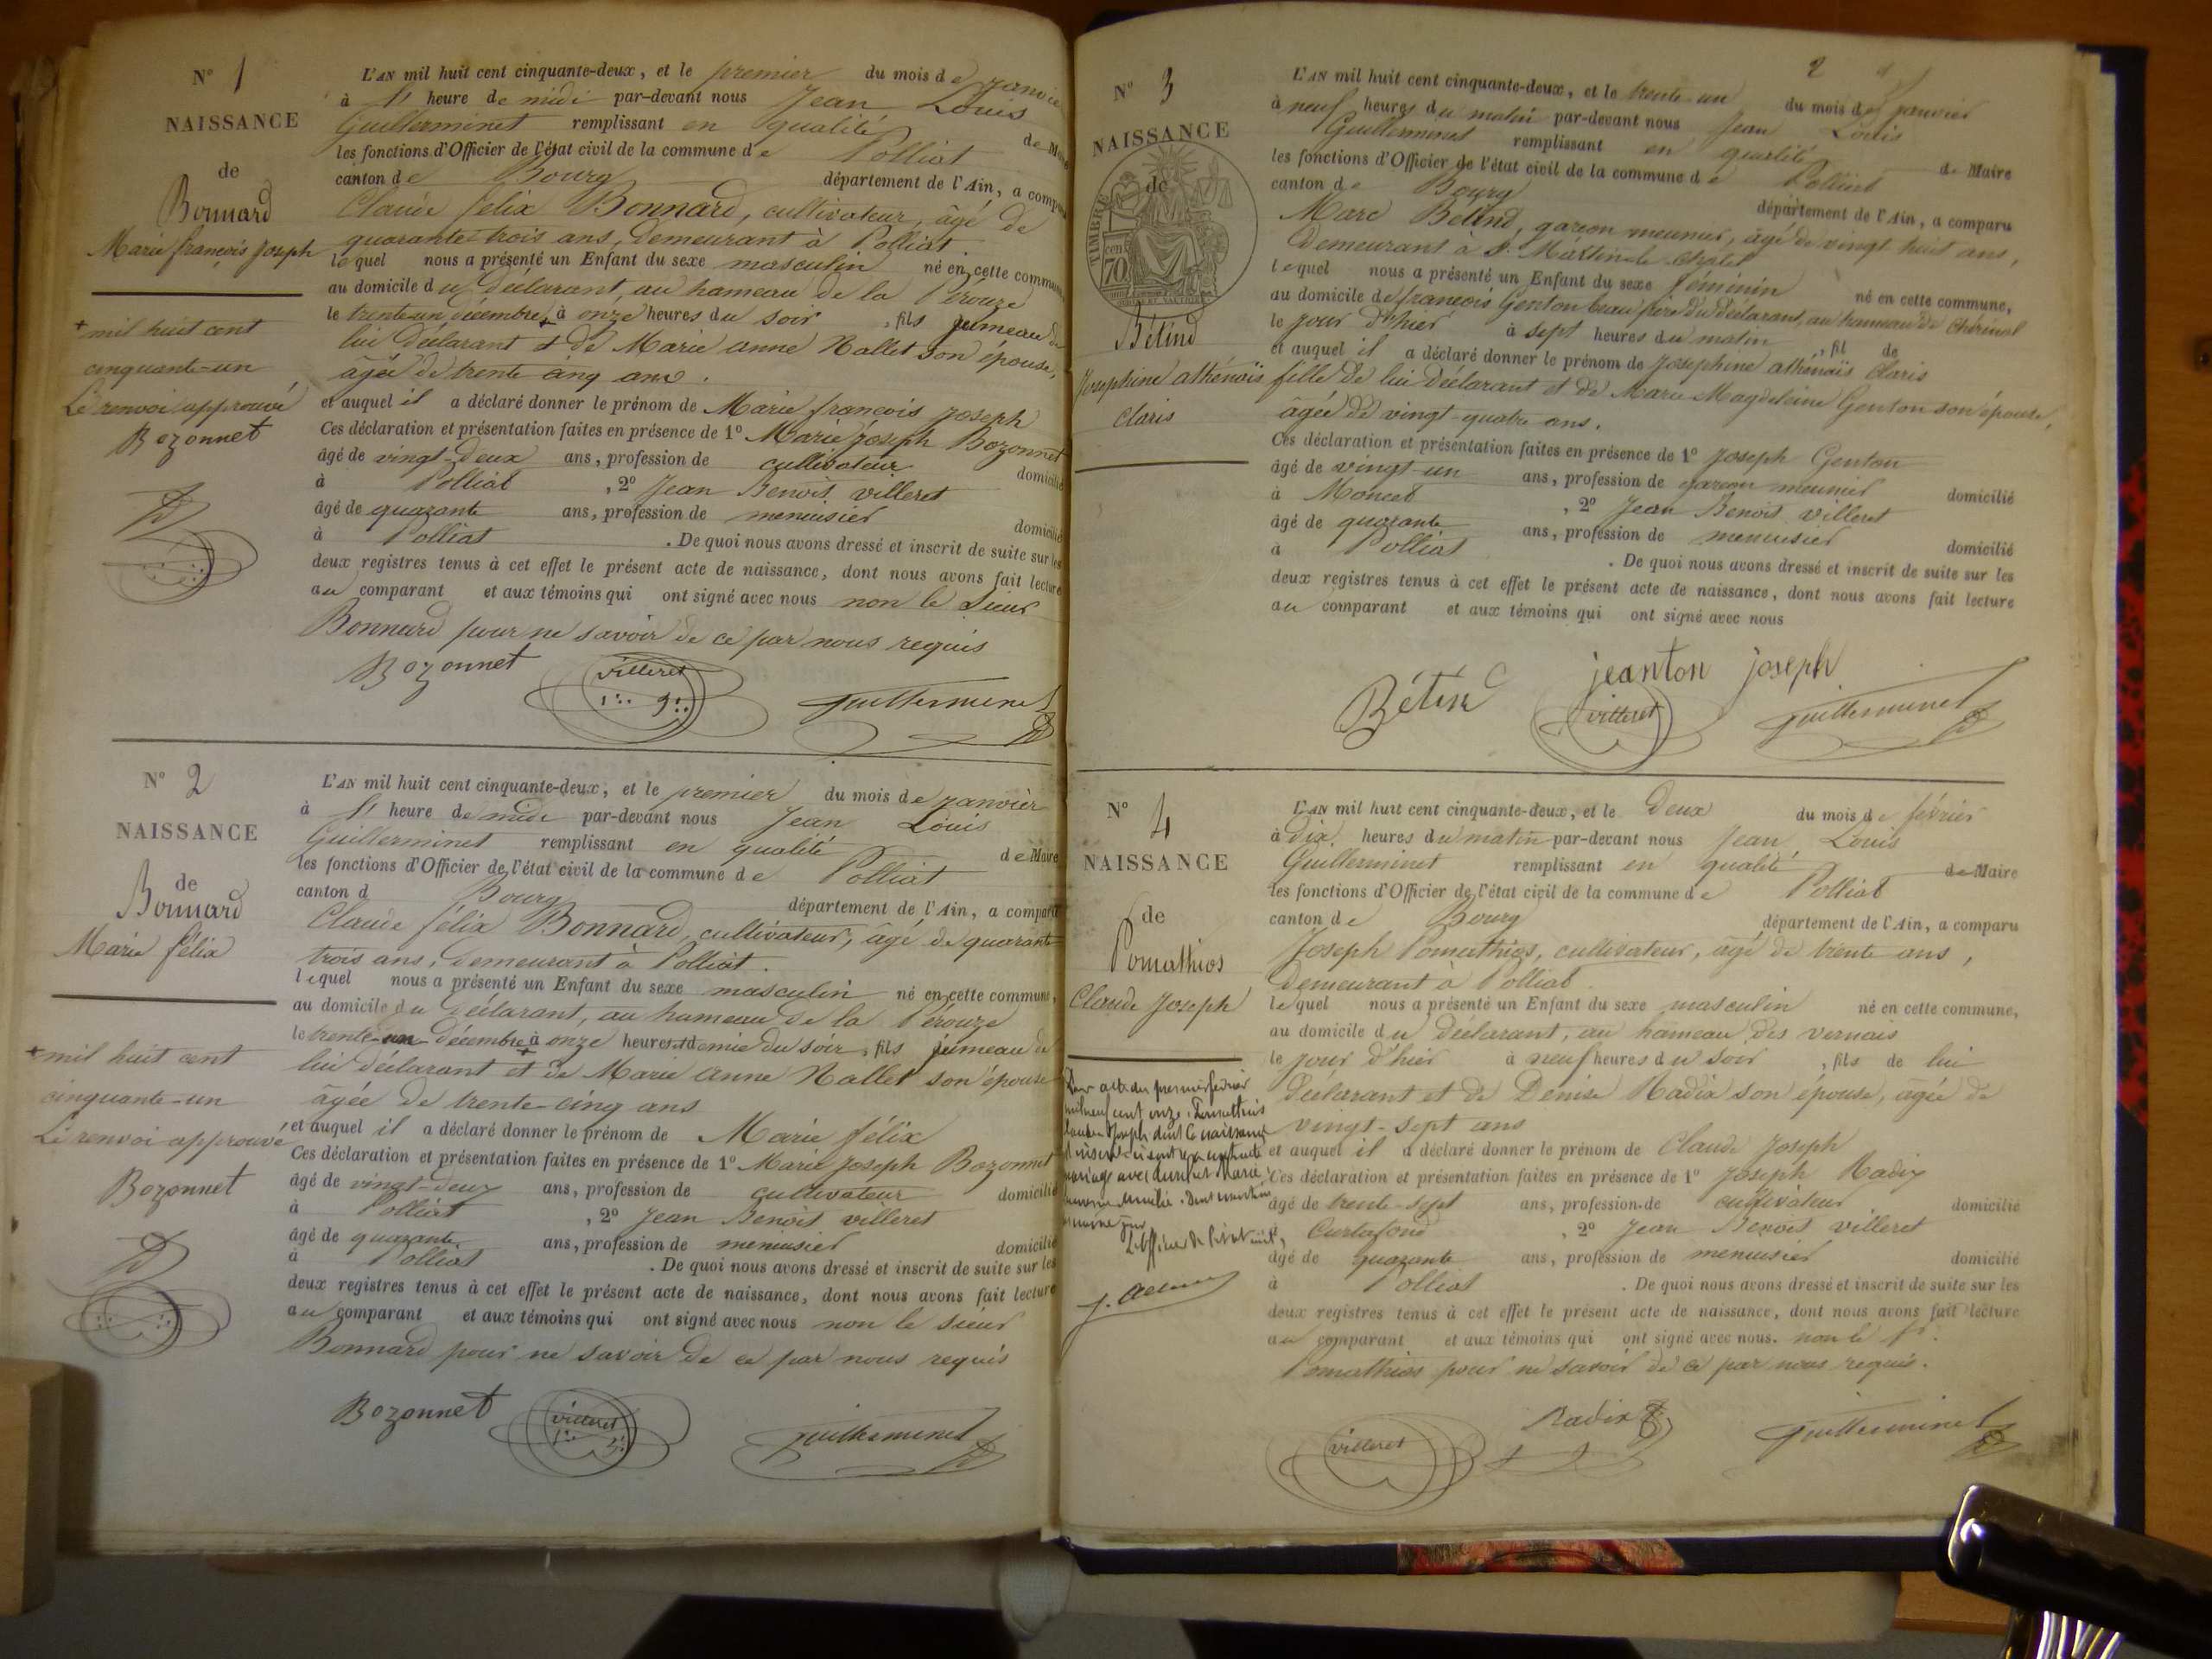 N° 1
NAISSANCE
de
Bonnard
Marie françois Joseph
+ mil huit cent
cinquante-un
Le renvoi approuvé
Bozonnet
L'AN mil huit cent cinquante-deux, et le premier du mois de Janvier
à 1 heure de midi par-devant nous Jean Louis
Guillerminet remplissant en qualité de Maire
les fonctions d'Officier de l'état civil de la commune de Polliat
canton de Bourg département de l'Ain, a comparu
Claude félix Bonnard, cultivateur, âgé de
quarante trois ans, demeurant à Polliat.
lequel nous a présenté un Enfant du sexe masculin né en cette commune,
au domicile du Déclarant, au hameau de la Pérouze
le trente-un décembre + à onze heures du soir, fils jumeau de
lui déclarant et de Marie anne Nallet son épouse,
âgée de trente cinq ans.
et auquel il a déclaré donner le prénom de Marie françois Joseph
Ces déclaration et présentation faites en présence de 1° Marie Joseph Bozonnet
âgé de vingt-deux ans, profession de cultivateur domicilié
à Polliat, 2° Jean Benoit villeret
âgé de quarante ans, profession de menuisier domicilié
à Polliat. De quoi nous avons dressé et inscrit de suite sur les
deux registres tenus à cet effet le présent acte de naissance, dont nous avons fait lecture
au comparant et aux témoins qui ont signé avec nous non le Sieur
Bonnard pour ne savoir de ce par nous requis
Bozonnet villeret guillerminet
N° 2
NAISSANCE
de
Bonnard
Marie félix
+ mil huit cent
cinquante-un
Le renvoi approuvé
Bozonnet
L'AN mil huit cent cinquante-deux, et le premier du mois de janvier
à 1 heure de midi par-devant nous Jean Louis
Guillerminet remplissant en qualité de Maire
les fonctions d'Officier de l'état civil de la commune de Polliat
canton d Bourg département de l'Ain, a comparu
Claude félix Bonnard, cultivateur, âgé de quarante
trois ans, demeurant à Polliat.
lequel nous a présenté un Enfant du sexe masculin né en cette commune,
au domicile du Déclarant, au hameau de la Pérouze
le trente-un Décembre + à onze heures et demie du soir, fils jumeau de
lui déclarant et de Marie anne Nallet son épouse
âgée de trente-cinq ans
et auquel il a déclaré donner le prénom de Marie félix
Ces déclaration et présentation faites en présence de 1° Marie Joseph Bozonnet
âgé de vingt-deux ans, profession de cultivateur domicilié
à Polliat, 2° Jean Benoit villeret
âgé de quarante ans, profession de menuisier domicilié
à Polliat. De quoi nous avons dressé et inscrit de suite sur les
deux registres tenus à cet effet le présent acte de naissance, dont nous avons fait lecture
au comparant et aux témoins qui ont signé avec nous non le sieur
Bonnard pour ne savoir de ce par nous requis
Bozonnet villeret guillerminet
2
N° 3
NAISSANCE
de
TIMBRE
70
Bétind
Josephine athénoïs
claris
L'AN mil huit cent cinquante-deux, et le trente-un du mois de janvier
à neuf heures du matin par-devant nous Jean Louis
Guillerminet remplissant en qualité de Maire
les fonctions d'Officier de l'état civil de la commune de Polliat
canton de Bourg département de l'Ain, a comparu
Marc Bétind, garcon meunier, âgé de vingt huit ans,
demeurant à St. Martin-le-chatel
lequel nous a présenté un Enfant du sexe féminin né en cette commune,
au domicile de françois Genton beau frère du déclarant, au hameau de
le jour d'hier à sept heures du matin, fil de
et auquel il a déclaré donner le prénom de Josephine athénoïs Claris
fille de lui déclarant et de Marie Magdeleine Genton son épouse,
âgée de vingt-quatre ans.
Ces déclaration et présentation faites en présence de 1° Joseph Genton
âgé de vingt-un ans, profession de garcon meunier domicilié
à Moncet, 2° Jean Benoit villeret
âgé de quarante ans, profession de menuisier domicilié
à Polliat. De quoi nous avons dressé et inscrit de suite sur les
deux registres tenus à cet effet le présent acte de naissance, dont nous avons fait lecture
au comparant et aux témoins qui ont signé avec nous
Bétind jeanton joseph villeret guillerminet
N° 4
NAISSANCE
de
Pomathios
Claude Joseph
Par acte du premier fevrier
mil neuf cent onze,
Joseph dont la naissance
mariage avec
L'officier de l'état civil,
L'AN mil huit cent cinquante-deux, et le Deux du mois de février
à dix heures du matin par-devant nous Jean Louis
Guillerminet remplissant en qualité de Maire
les fonctions d'Officier de l'état civil de la commune de Polliat
canton de Bourg département de l'Ain, a comparu
Joseph Pomathios, cultivateur, âgé de trente ans,
demeurant à Polliat
lequel nous a présenté un Enfant du sexe masculin né en cette commune,
au domicile du déclarant, au hameau des vernais
le jour d'hier à neuf heures du soir, fils de lui
déclarant et de Denise Radix son épouse, âgée de
vingt-sept ans
et auquel il a déclaré donner le prénom de Claude Joseph
Ces déclaration et présentation faites en présence de 1° Joseph Radix
âgé de trente-sept ans, profession de cultivateur domicilié
à Curtafond, 2° Jean Benoit villeret
âgé de quarante ans, profession de menuisier domicilié
à Polliat. De quoi nous avons dressé et inscrit de suite sur les
deux registres tenus à cet effet le présent acte de naissance, dont nous avons fait lecture
au comparant et aux témoins qui ont signé avec nous. non le Sr.
Pomathios pour ne savoir de ce par nous requis.
villeret Radix guillerminet